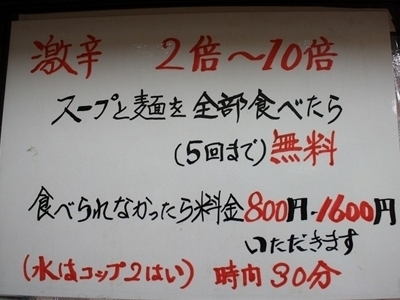 激辛 2倍〜10倍
スープと麺を全部食べたら
(5回まで)無料
食べられなかったら料金800円-1600円
いただきます
(水はコップ2はい) 時内30分